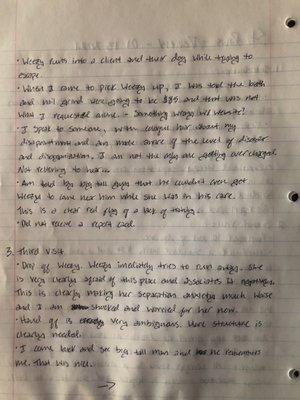 • Weezy runs into a client and their dog while trying to
escape.
• When I came to pick Weezy up, I was told the bath
and nail grind were going to be $85 and that was not
what I requested online. - Something wrong w/ website?
• I speak to someone, with about my
disapointment and am made aware of the level of disorder
and disorganization. I am not the only one getting over charged.
Not returning to her...
• Am told by big tall guys that he couldn't even get
Weezy to come near him while she was in his care.
This is a clear red flag of a lack of
• Did not receive a report card.
3. Third Visit
• Drop off Weezy. Weezy imediatly tries to run away. She
is very clearly afraid of this place and associates it
This is clearly making her separation anxiety much worse
and I am stressed and worried for her now.
• Hand off is very ambiguous. More structure is
clearly needed.
• I come back and see big tall man and he remembers
me. That was nice.
→